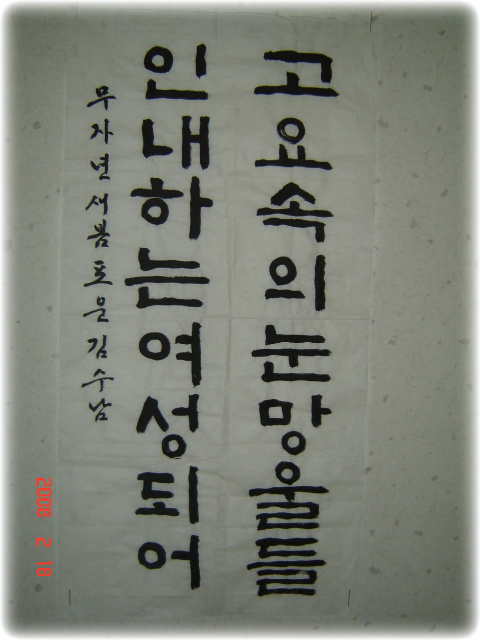 고요속의눈망울들
인내하는여성되어
무자년새봄포운김수남
2008 2 18